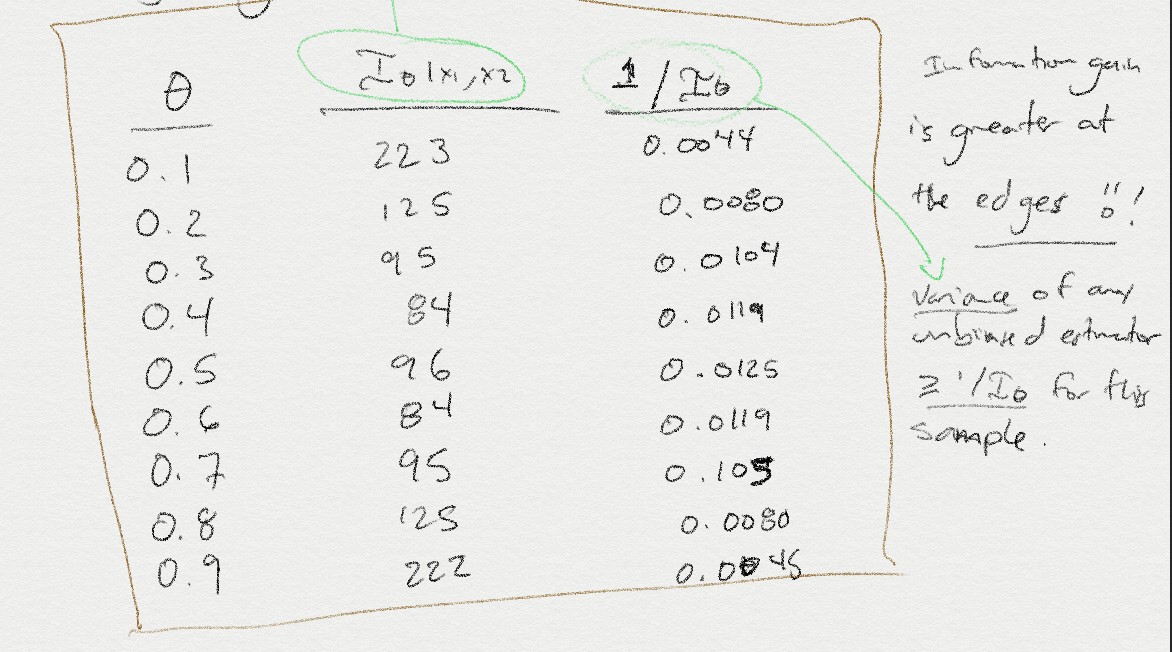 θ I_θ|x₁,x₂ 1/I_θ
0.1 223 0.0044
0.2 125 0.0080
0.3 95 0.0104
0.4 84 0.0119
0.5 96 0.0125
0.6 84 0.0119
0.7 95 0.105
0.8 125 0.0080
0.9 222 0.0045
Information gain
is greater at
the edges !!!
variance of any
unbiased estimator
≥ 1/I_θ for this
sample.